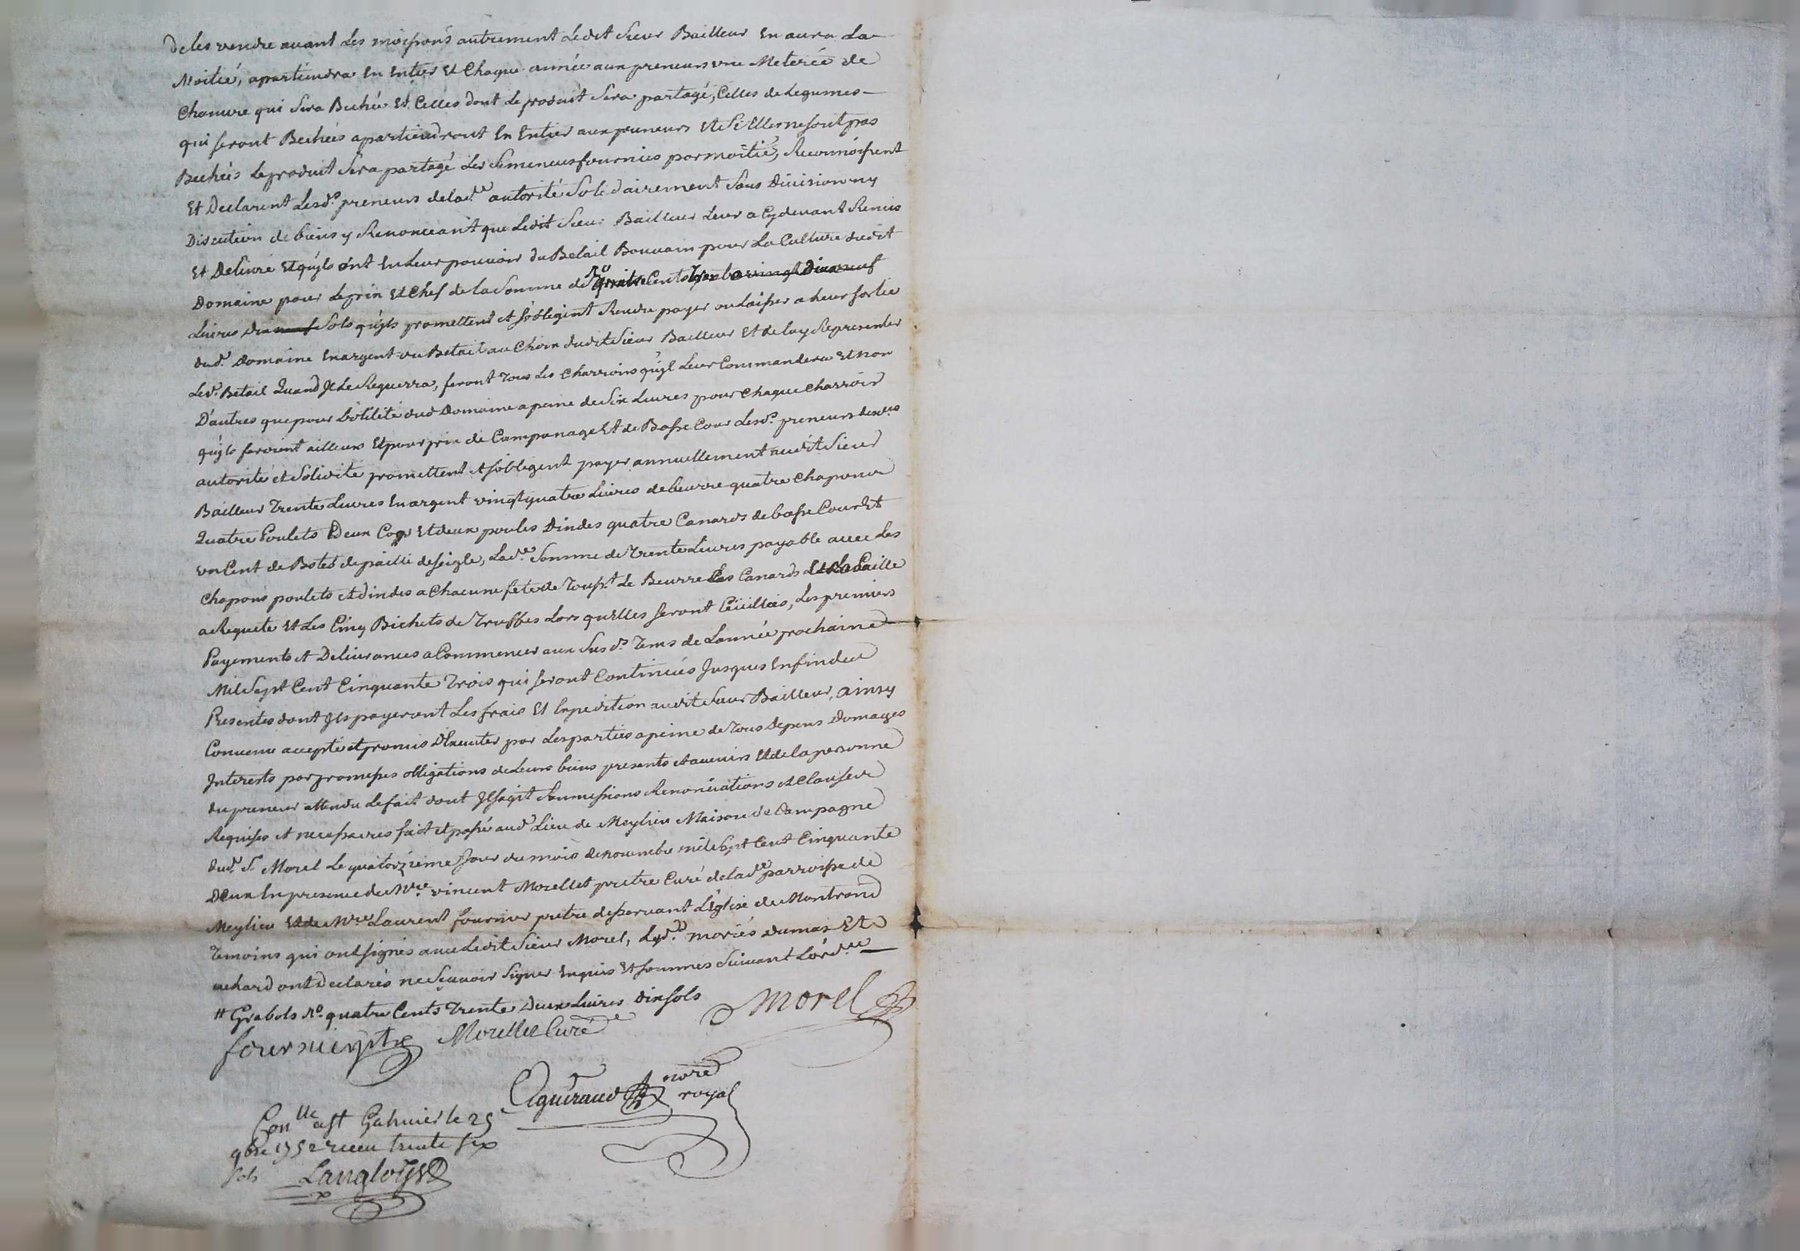 de les vendre auant les moissons autrement ledit sieur Bailleur en aura la
Moitié, apartiendra en entier et Chaque année aux preneurs une Meterée de
Chanure qui sera Bechée et Celles dont le produit sera partagé, Celles de Legumes
qui seront Bechées apartiendront en entier aux preneurs et si Elles ne sont pas
Bechées le produit sera partagé les semences fournies par moitié, Reconnoissent
et Declarent lesd. preneurs de lad.e autorité solidairement sans Division ny
Discution de biens y Renonceant que ledit sieur Bailleur leur a Cydevant Remis
et Deliuré et qu'yls ont en leur pouvoir du Betail Bouuain pour la Culture dudit
Domaine pour le prix et Chef de la somme de quatre Cents
Liures sols qu'yls promettent et s'obligent Rendre payer ou laisser a leur sortie
dud. Domaine en argent ou Betail au Choix dudit sieur Bailleur et de luy Representer
led. Betail Quand Il le Requerra, feront tous les Charrois qu'yl leur Commandera et non
D'autres que pour l'utilité dud Domaine a peine de six Liures pour Chaque charroir
qu'yls feroient ailleurs et pour prix de Campanage et de Basse Cour lesd. preneurs
autorité et solidité promettent et s'obligent payer annuellement audit sieur
Bailleur Trente Liures en argent vingt quatre Liures de beurre quatre Chapons
Quatre Poulets Deux Coqs et deux poules Dindes quatre Canards de basse Cour et
un Cent de Botes de paille de seigle, lad.e somme de trente Liures payable auec les
Chapons poulets et dindes a Chacune fete de Touss.t le Beurre les Canards et la Paille
a Requete et les Cinq Bichets de Truffes lors qu'elles seront Ceuillies, les premiers
Payements et Deliurances a Commencer aux susd.s tems de l'année prochaine
Mil sept Cent Cinquante trois qui seront Continués Jusques en fin des
Presentes dont Ils payeront les frais et Expedition audit sieur Bailleur, ainsy
Conuenu accepté et promis d'executer par les parties a peine de tous depens domages
Interests par promesses obligations de leurs biens presents et auenirs et de la personne
du preneur attendu le fait dont Il s'agit soumissions Renonciations et Clauses
Requises et necessaires fait et passé aud. Lieu de Meylieu Maison de Campagne
dud. S. Morel le quatorzieme Jour du mois de nouembre mil sept Cent Cinquante
Deux en presence de M.re vincent Morellet pretre Curé de lad.e parroisse de
Meylieu et de M.re Laurent fournier pretre desseruant l'Eglise de Montrond
Temoins qui ont signés auec ledit sieur Morel, lesd.s mariés dumas et
ont Declarés ne sçauoir signer enquis et sommés suiuant l'ord.ce
# quatre Cents Trente Deux Liures dix sols
fournier ptre Morellet Curé Morel
Aguiraud nore
royal
Con.lle a st Galmier le 25
9bre 1752 reçu trente six
sols Langloys